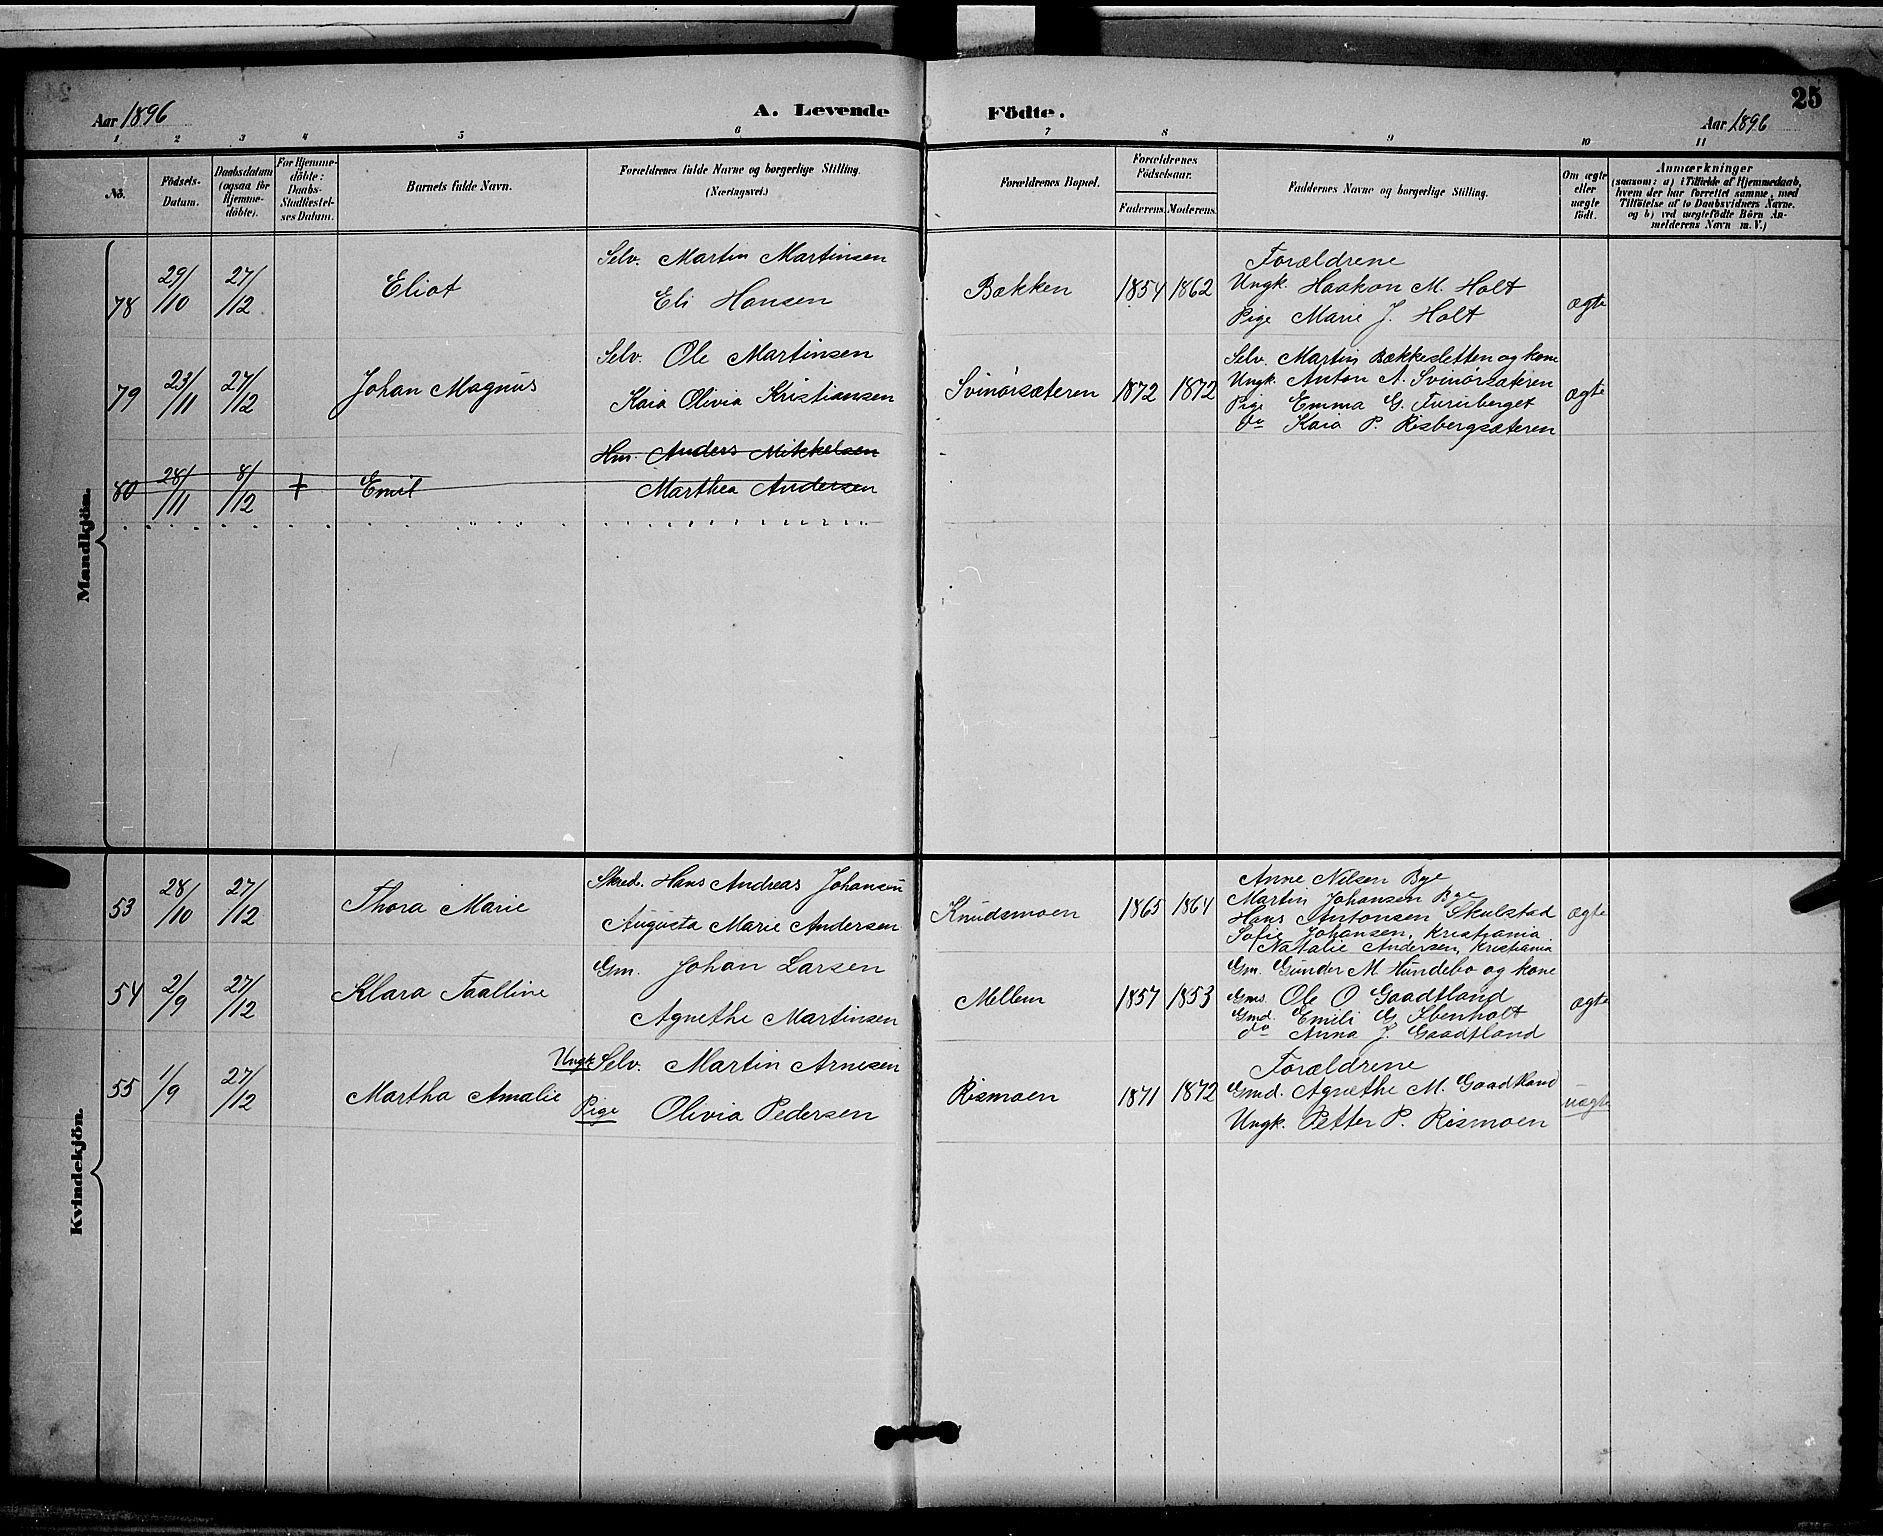 25
Aar 1896
A. Levende Födte.
Aar 1896
1 2 3 4 5 6 7 8 9 10 11
No.
Födsels-Datum.
Daabsdatum (ogsaa för Hjemme-döbte).
For Hjemme-döbte: Daabs-Stadfæstel-ses Datum.
Barnets fulde Navn.
Forældrenes fulde Navne og borgerlige Stilling. (Næringsvei.)
Forældrenes Bopæl.
Forældrenes Födselsaar.
Faderens. Moderens.
Faddernes Navne og borgerlige Stilling.
Om ægte eller uægte födt.
Anmærkninger
(saasom: a) i Tilfælde af Hjemmedaab,
hvem der har forrettet samme, med
Tilföielse af to Daabsvidners Navne.
og b) ved uægtefödte Börn An-
melderens Navn m. V.)
Mandkjön.
78 29/10 27/12 Eliot
Selv. Martin Martinsen
Eli Hansen
Bakken 1854 1862
Forældrene
Ungk. Haakon M. Holt
Pige Marie J. Holt
ægte
79 23/11 27/12 Johan Magnus
Selv. Ole Martinsen
Kaia Olivia Kristiansen
Svinörsæteren 1872 1872
Selv. Martin Bækkesletten og kone
Ungk. Anton A. Svinörsæteren
Pige Emma G. Furuberget
do Kaia P. Risbergsæteren
ægte
80 28/11 8/12 + Emil
Hm. Anders Mikkelsen
Marthea Andersen
Kvindekjön.
53 28/10 27/12 Thora Marie
Skred. Hans Andreas Johansen
Augusta Marie Andersen
Knudsmoen 1865 1864
Anne Nilsen Bye
Martin Johansen Bye
Hans Antonsen Skulstad
Sofie Johansen, Kristiania
Natalie Andersen, Kristiania
ægte
54 2/9 27/12 Klara Taalline
Gm. Johan Larsen
Agnethe Martinsen
Mellem 1857 1853
Gm. Gunder M Hundebo og kone
Gms. Ole O Gaadtland
Gmd. Emili G. Stenholt
do Anna J. Gaadtland
ægte
55 1/9 27/12 Martha Amalie
Ungk. Selv. Martin Arnesen
Pige Olivia Pedersen
Rismoen 1871 1872
Forældrene
Gmd. Agnethe M. Gaadtland
Ungk. Petter P. Rismoen
uægte